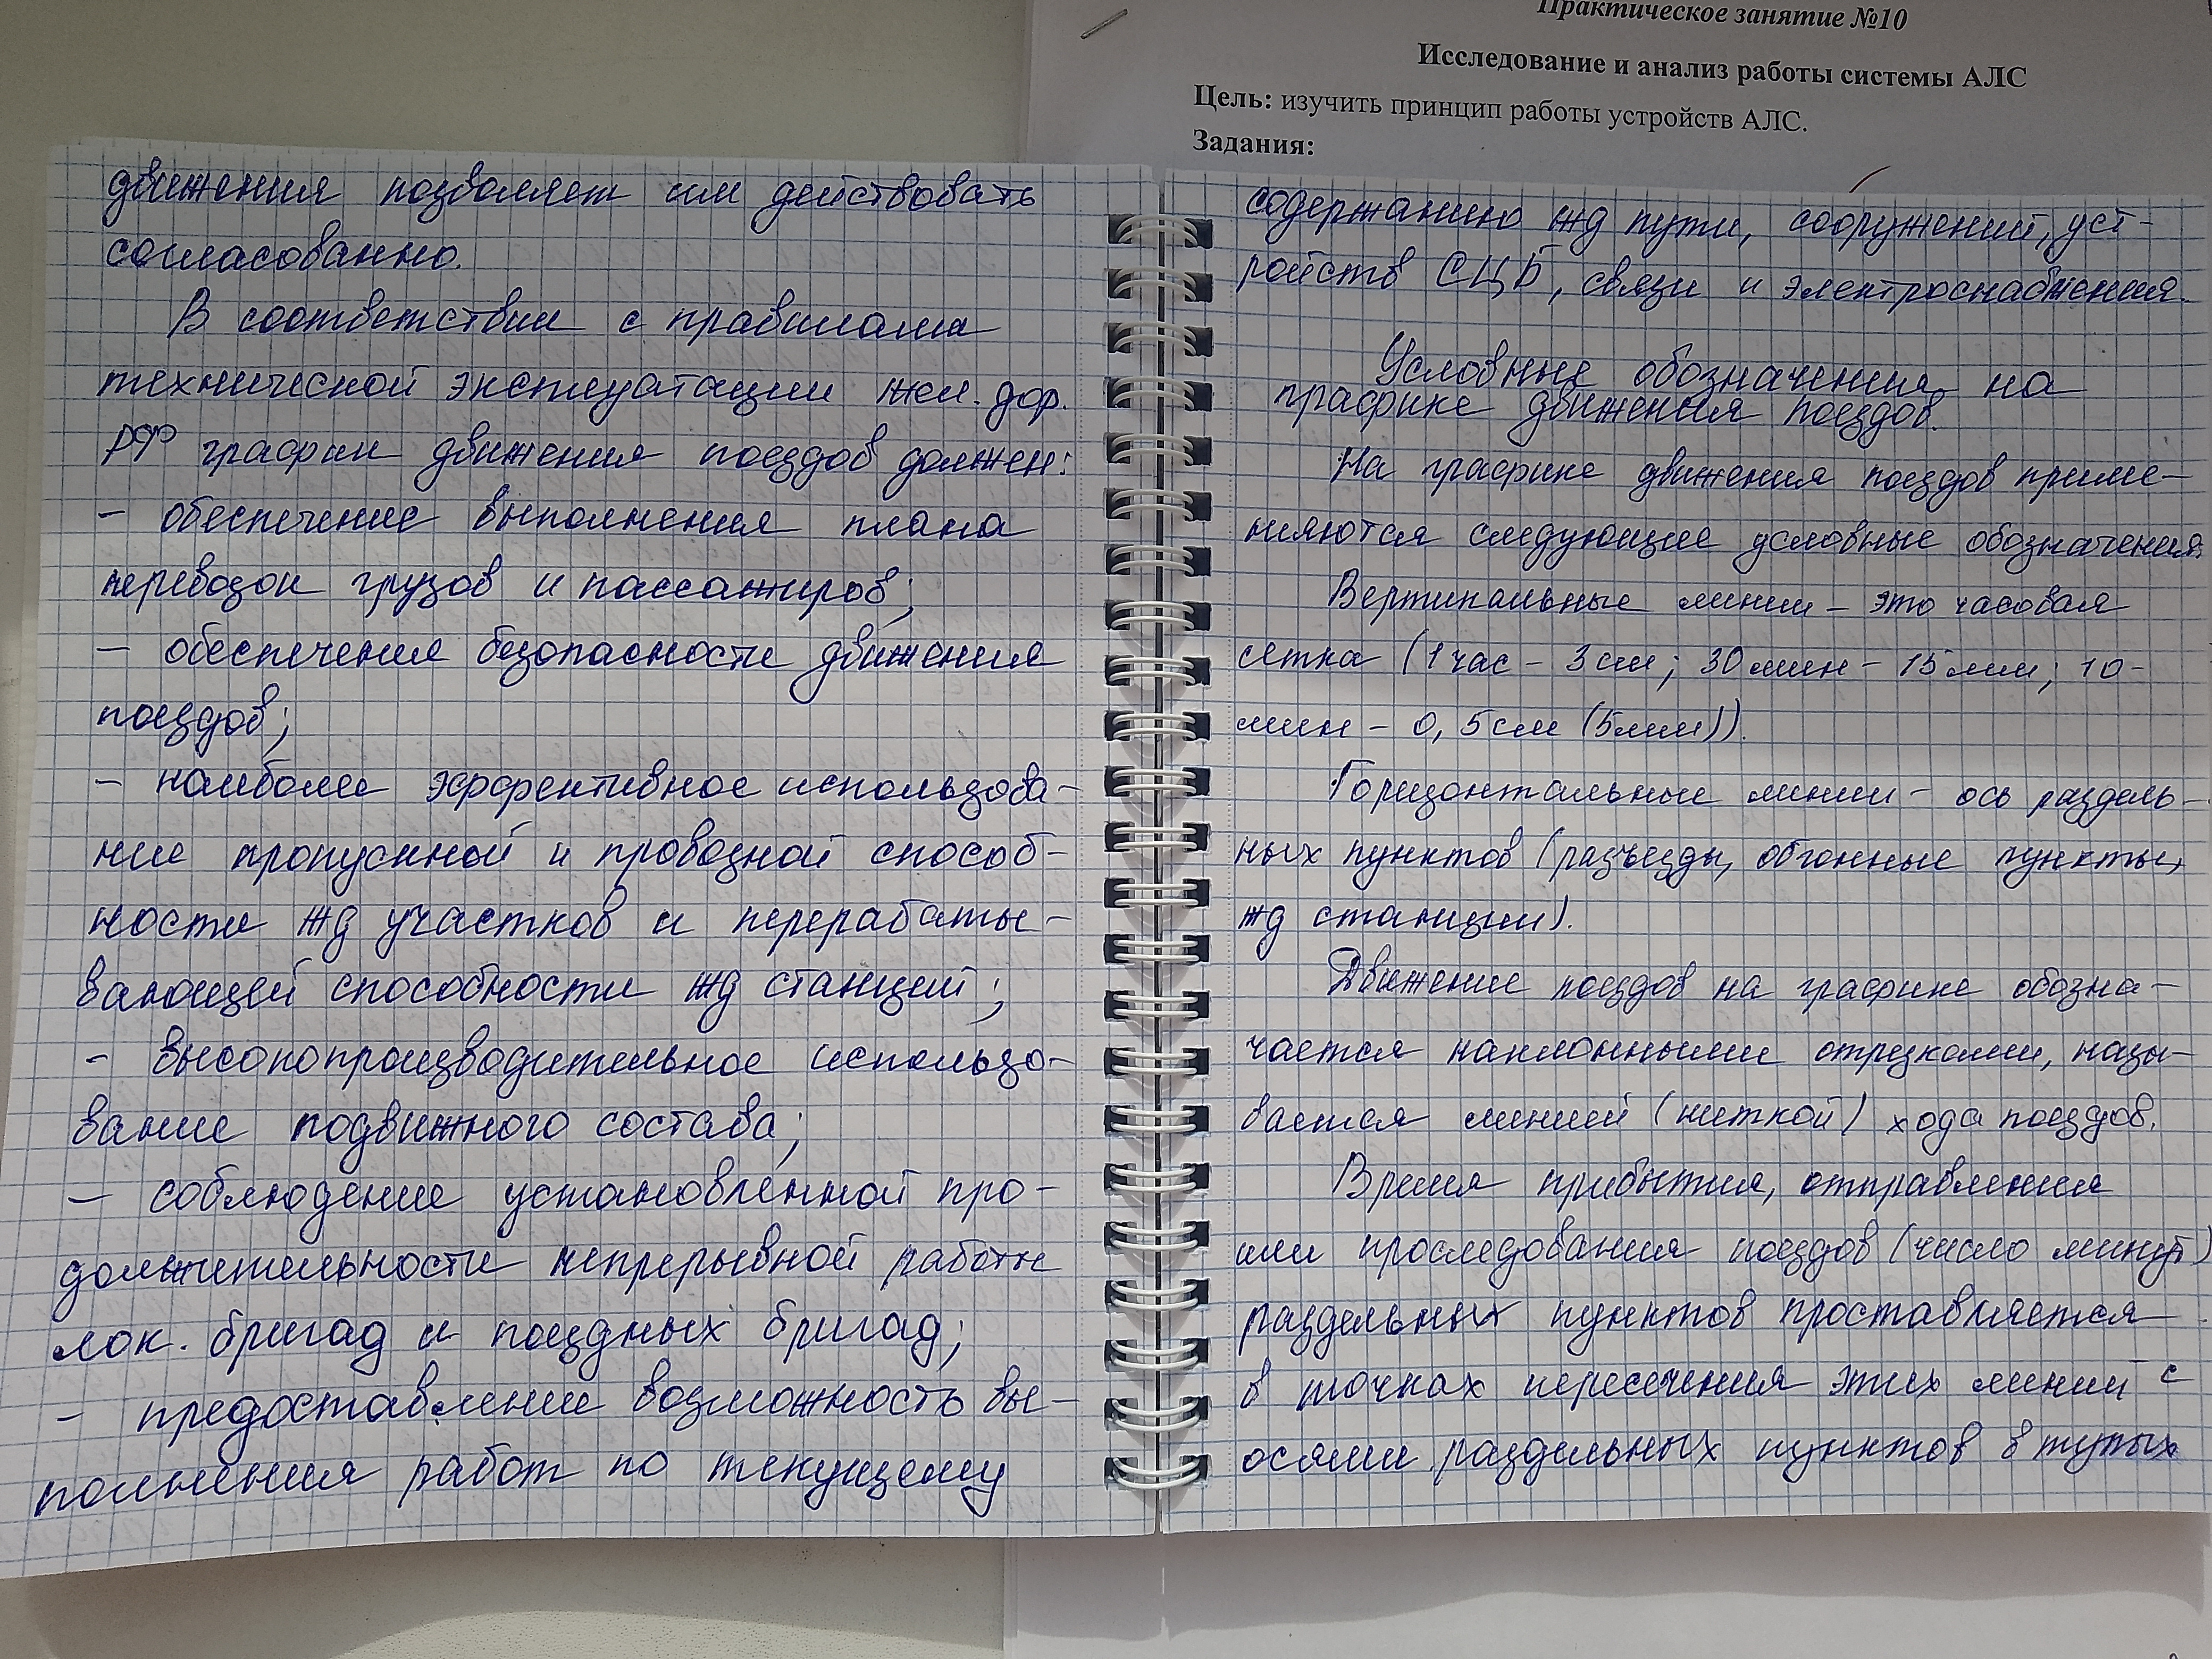 Практическое занятие №10
Исследование и анализ работы системы АЛС
Цель: изучить принцип работы устройств АЛС.
Задания:
движения позволяет им действовать
согласованно.
В соответствии с правилами
технической эксплуатации жел. дор.
РФ график движения поездов должен:
- обеспечение выполнения плана
перевозок грузов и пассажиров;
- обеспечения безопасности движения
поездов;
- наиболее эффективное использова-
ние пропускной и провозной способ-
ности жд участков и перерабаты-
вающей способности жд станций;
- высокопроизводительное использо-
вание подвижного состава;
- соблюдение установленной про-
должительности непрерывной работы
лок. бригад и поездных бригад;
- предоставление возможность вы-
полнения работ по текущему
содержанию жд пути, сооружений, уст-
ройств СЦБ, связи и электроснабжения.
Условные обозначения на
графике движения поездов.
На графике движения поездов приме-
няются следующие условные обозначения.
Вертикальные линии - это часовая
сетка (1 час - 3 см; 30 мин - 15 мм; 10-
мин - 0,5 см (5мм)).
Горизонтальные линии - ось раздель-
ных пунктов (разъезды, обгонные пункты,
жд станции).
Движение поездов на графике обозна-
чается наклонными отрезками, назы-
вается линией (ниткой) хода поездов.
Время прибытия, отправления
или проследования поездов (число минут)
раздельных пунктов проставляется
в точках пересечения этих линий с
осями раздельных пунктов в тупых